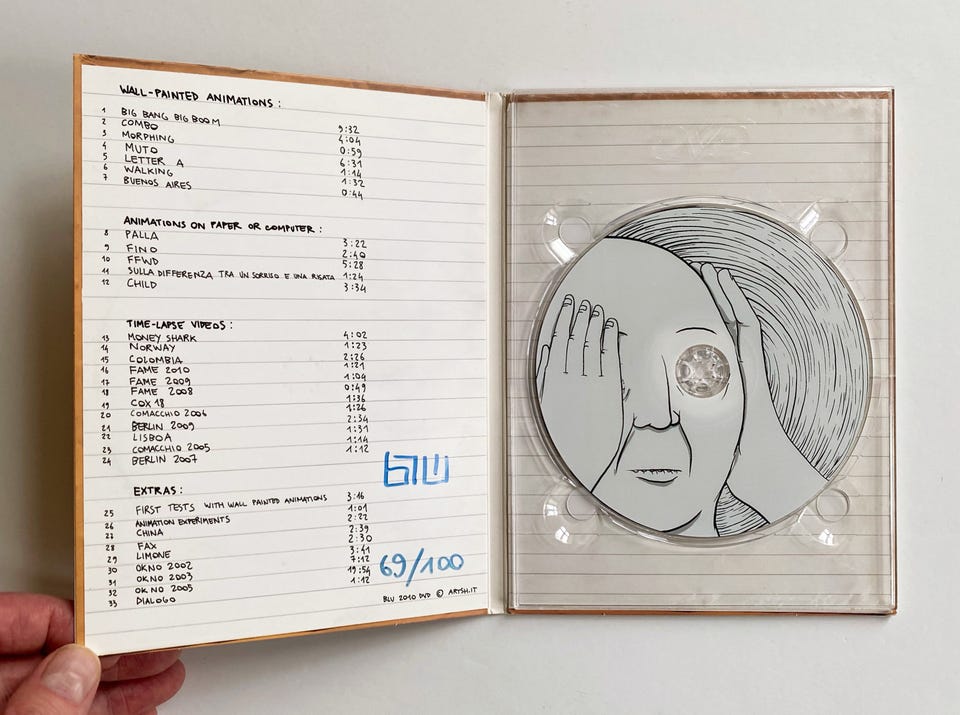 WALL-PAINTED ANIMATIONS :
1 BIG BANG BIG BOOM 9:32
2 COMBO 4:04
3 MORPHING 0:59
4 MUTO 6:31
5 LETTER A 1:14
6 WALKING 1:32
7 BUENOS AIRES 0:44
ANIMATIONS ON PAPER OR COMPUTER :
8 PALLA 3:22
9 FINO 2:40
10 FFWD 5:28
11 SULLA DIFFERENZA TRA UN SORRISO E UNA RISATA 1:24
12 CHILD 3:34
TIME-LAPSE VIDEOS :
13 MONEY SHARK 4:02
14 NORWAY 1:23
15 COLOMBIA 2:26
16 FAME 2010 1:21
17 FAME 2009 1:04
18 FAME 2008 0:49
19 COX 18 1:36
20 COMACCHIO 2006 1:26
21 BERLIN 2009 2:34
22 LISBOA 1:31
23 COMACCHIO 2005 1:14
24 BERLIN 2007 1:12
BLU
EXTRAS :
25 FIRST TESTS WITH WALL PAINTED ANIMATIONS 3:16
26 ANIMATION EXPERIMENTS 1:01
27 CHINA 2:22
28 FAX 2:39
29 LIMONE 2:30
30 OKNO 2002 3:41
31 OKNO 2003 7:12
32 OKNO 2005 19:54
33 DIALOGO 1:12
69/100
BLU 2010 DVD © ARTSH.IT